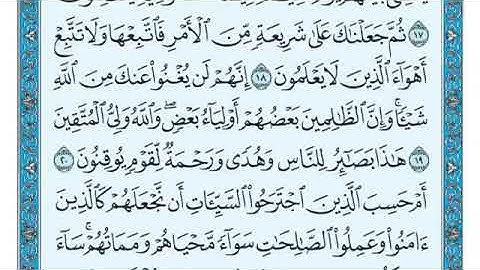 ١٧ ثُمَّ جَعَلْنَٰكَ عَلَىٰ شَرِيعَةٍ مِّنَ ٱلْأَمْرِ فَٱتَّبِعْهَا وَلَا تَتَّبِعْ
أَهْوَآءَ ٱلَّذِينَ لَا يَعْلَمُونَ ١٨ إِنَّهُمْ لَن يُغْنُوا۟ عَنكَ مِنَ ٱللَّهِ
شَيْـًٔا ۚ وَإِنَّ ٱلظَّٰلِمِينَ بَعْضُهُمْ أَوْلِيَآءُ بَعْضٍ ۖ وَٱللَّهُ وَلِىُّ ٱلْمُتَّقِينَ
١٩ هَٰذَا بَصَٰٓئِرُ لِلنَّاسِ وَهُدًى وَرَحْمَةٌ لِّقَوْمٍ يُوقِنُونَ ٢٠
أَمْ حَسِبَ ٱلَّذِينَ ٱجْتَرَحُوا۟ ٱلسَّيِّـَٔاتِ أَن نَّجْعَلَهُمْ كَٱلَّذِينَ
ءَامَنُوا۟ وَعَمِلُوا۟ ٱلصَّٰلِحَٰتِ سَوَآءً مَّحْيَاهُمْ وَمَمَاتُهُمْ ۚ سَآءَ